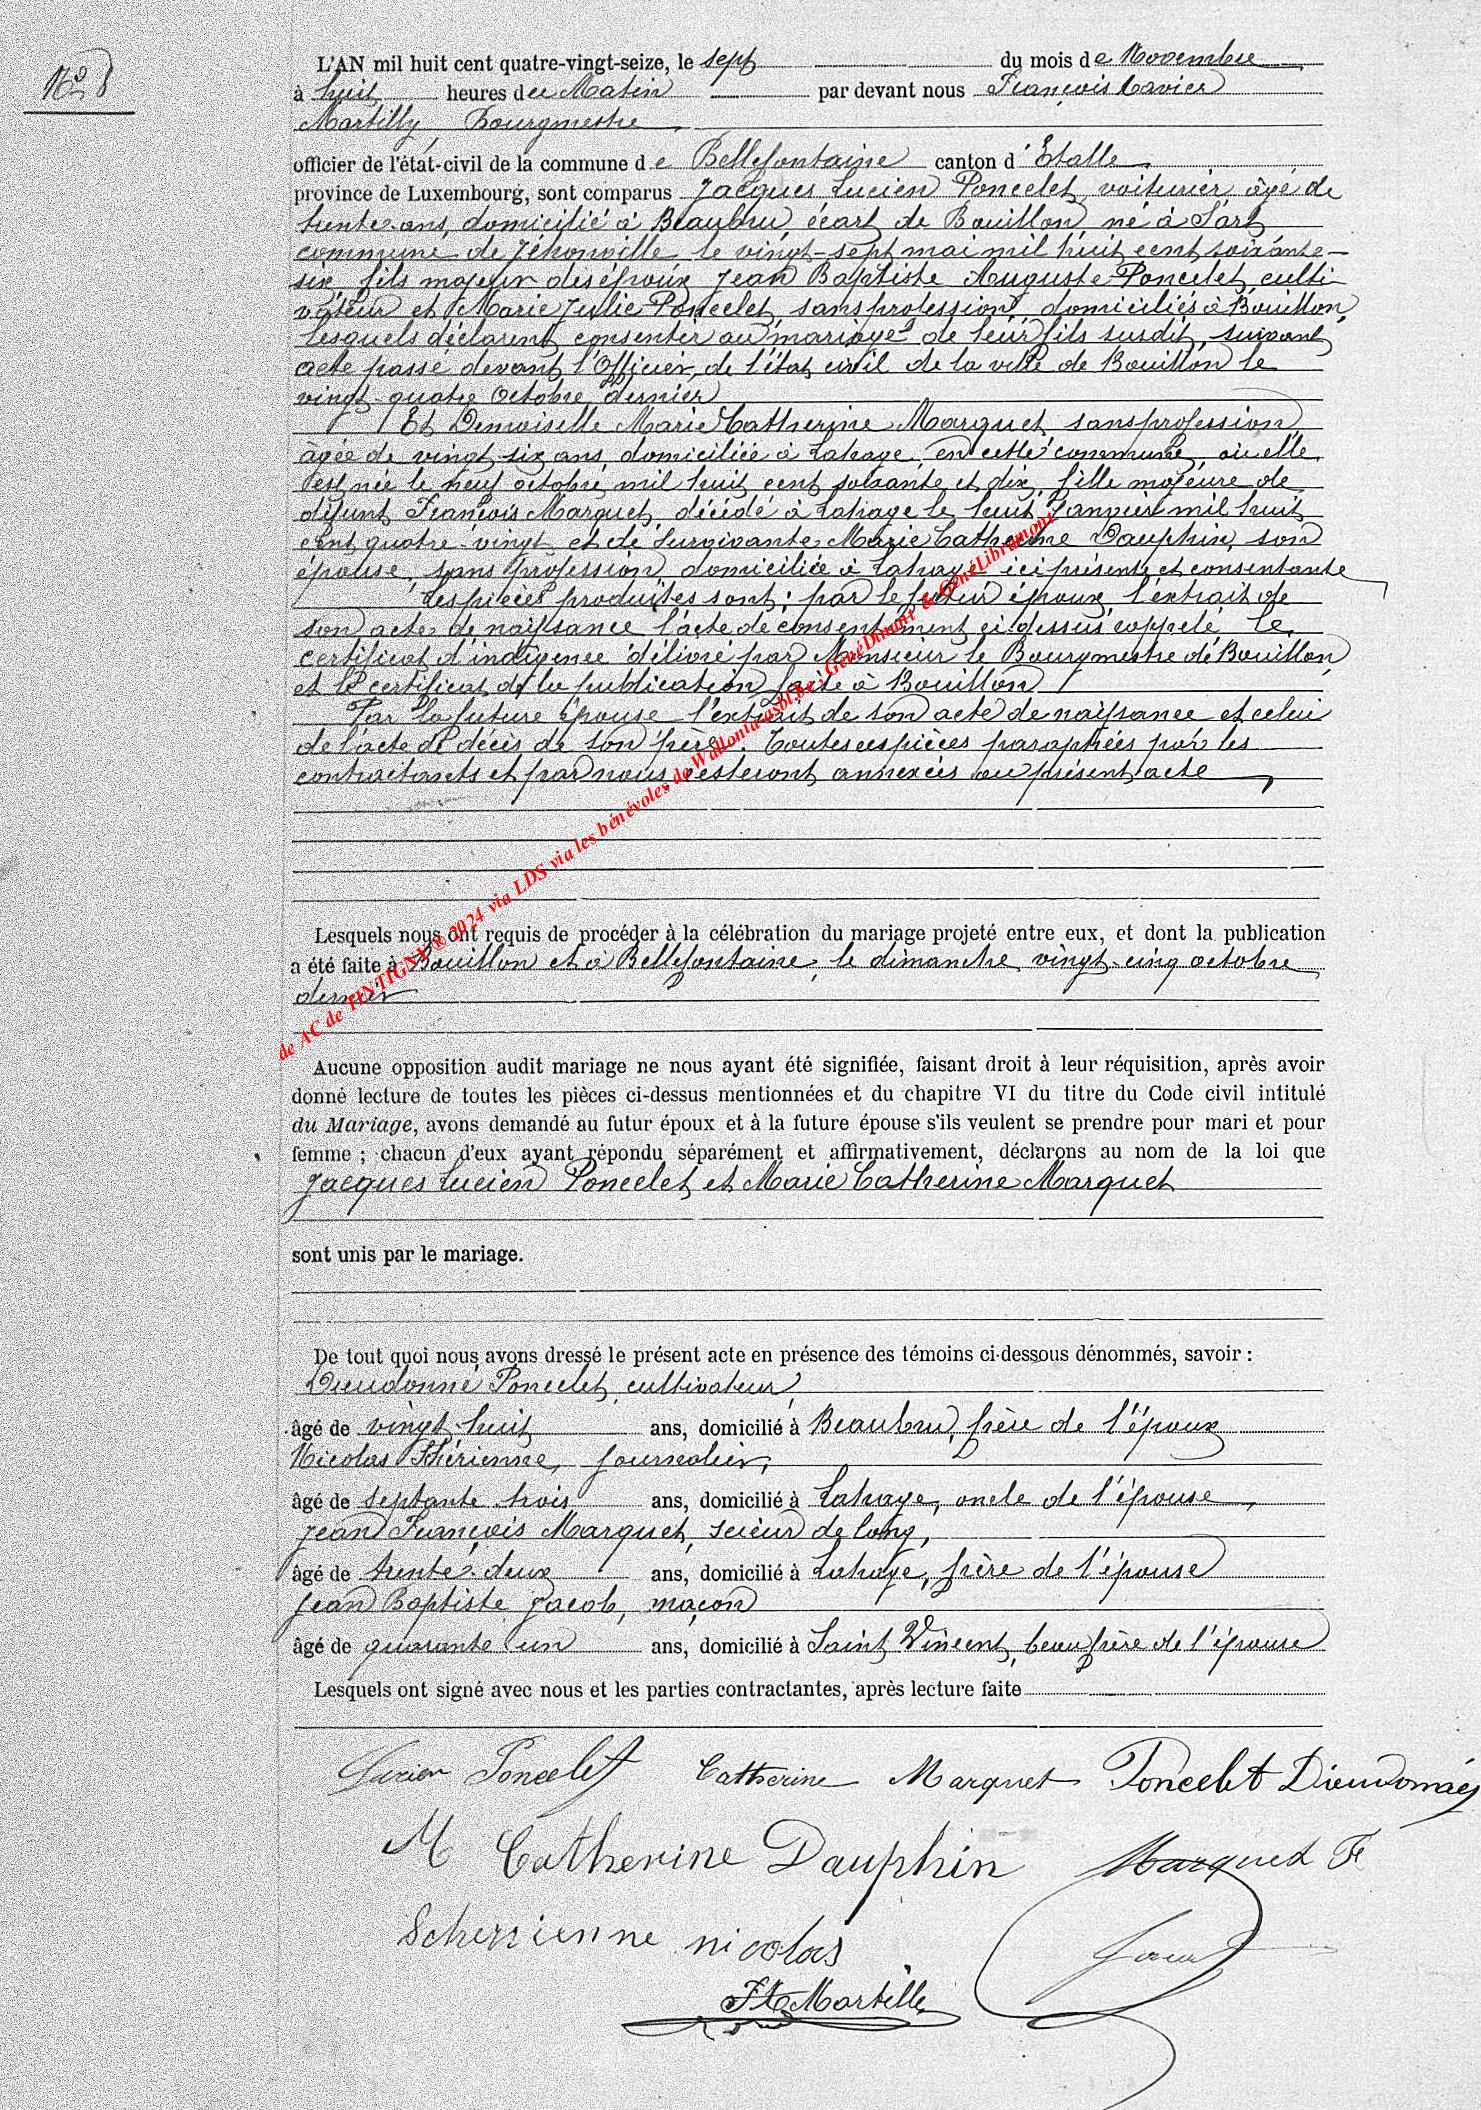 No 8
L'AN mil huit cent quatre-vingt-seize, le sept du mois de Novembre
à huit heures du Matin par devant nous François Xavier
Martilly, Bourgmestre,
officier de l'état-civil de la commune de Bellefontaine canton d'Etalle,
province de Luxembourg, sont comparus Jacques Lucien Poncelet, voiturier âgé de
trente ans, domicilié à Beaubru, écart de Bouillon, né à Sart
commune de Jéhonville le vingt-sept mai mil huit cent soixante-
six, fils majeur des époux Jean Baptiste Auguste Poncelet, culti
vateur et Marie Julie Poncelet, sans profession, domiciliés à Bouillon,
lesquels déclarent consentir au mariage de leur fils susdit, suivant
acte passé devant l'Officier de l'état civil de la ville de Bouillon le
vingt-quatre Octobre dernier
Et Demoiselle Marie Catherine Marquet, sans profession,
âgée de vingt six ans, domiciliée à Lahage, en cette commune, où elle
est née le neuf octobre mil huit cent soixante et dix, fille majeure de
défunt François Marquet, décédé à Lahage le huit Janvier mil huit
cent quatre-vingt et de survivante Marie Catherine Dauphin, son
épouse, sans profession, domiciliée à Lahage ici présente et consentante
Les pièces produites sont : par le futur époux, l'extrait de
son acte de naissance l'acte de consentement ci-dessus rappelé, le
certificat d'indigence délivré par Monsieur le Bourgmestre de Bouillon
et le certificat de la publication faite à Bouillon
Par la future Epouse l'extrait de son acte de naissance et celui
de l'acte de décès de son père. Toutes ces pièces paraphées par les
contractants et par nous resteront annexées au présent acte
Lesquels nous ont requis de procéder à la célébration du mariage projeté entre eux, et dont la publication
a été faite à Bouillon et à Bellefontaine, le dimanche vingt-cinq octobre
dernier
de AC de TINTIGNY ® 2024 via LDS via les bénévoles de Wallonia-asbl.be ; GénéDinant & GénéLibramont
Aucune opposition audit mariage ne nous ayant été signifiée, faisant droit à leur réquisition, après avoir
donné lecture de toutes les pièces ci-dessus mentionnées et du chapitre VI du titre du Code civil intitulé
du Mariage, avons demandé au futur époux et à la future épouse s'ils veulent se prendre pour mari et pour
femme ; chacun d'eux ayant répondu séparément et affirmativement, déclarons au nom de la loi que
Jacques Lucien Poncelet et Marie Catherine Marquet
sont unis par le mariage.
De tout quoi nous avons dressé le présent acte en présence des témoins ci-dessous dénommés, savoir :
Dieudonné Poncelet, cultivateur,
âgé de vingt-huit ans, domicilié à Beaubru, frère de l'époux
Nicolas Schérienne, journalier,
âgé de septante trois ans, domicilié à Lahage, oncle de l'épouse,
Jean François Marquet, scieur de long,
âgé de trente-deux ans, domicilié à Lahage, frère de l'épouse
Jean Baptiste Jacob, maçon
âgé de quarante un ans, domicilié à Saint Vincent, beau frère de l'épouse
Lesquels ont signé avec nous et les parties contractantes, après lecture faite
Lucien Poncelet Catherine Marquet Poncelet Dieudonné
M Catherine Dauphin Marquet F
Scherrienne nicolas
FX Martilly